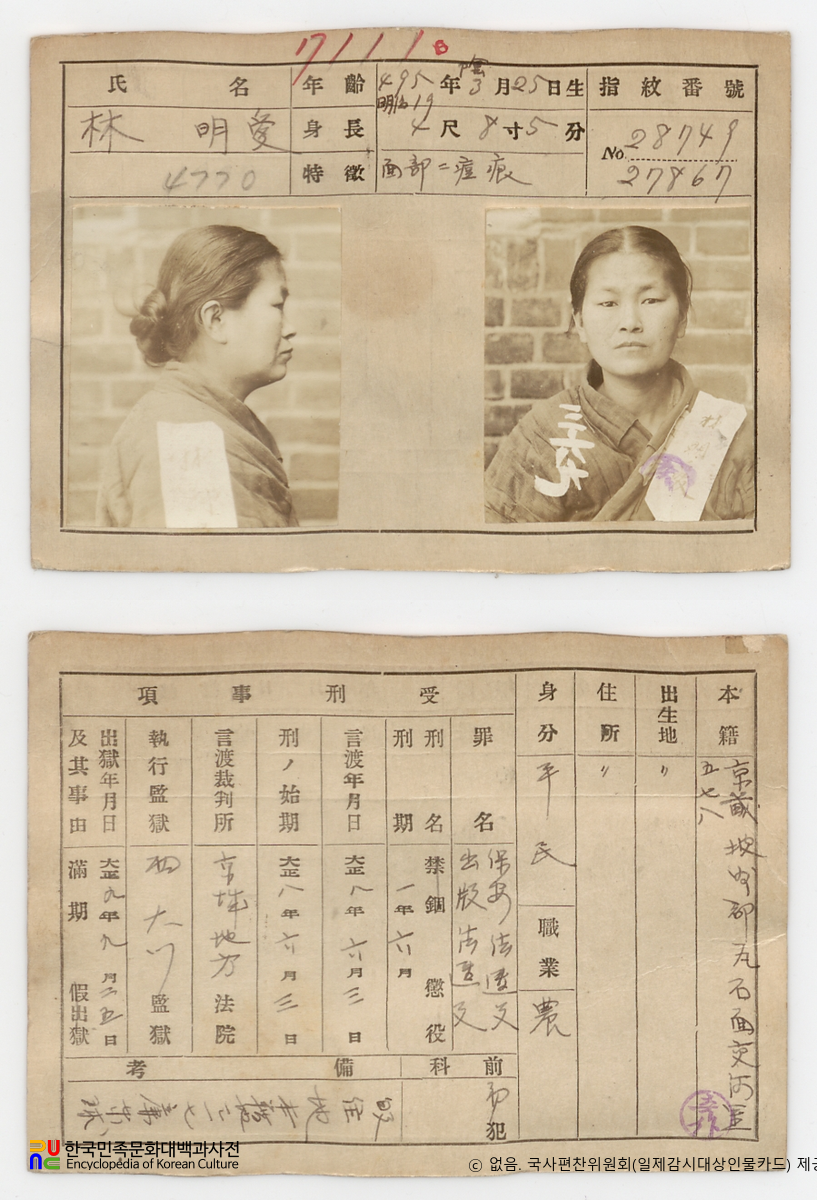 7111 B
氏名
林 明愛
4770
年齡
495年 陰3月25日生
明治19
身長
4尺8寸5分
特徵
面部ニ痘痕
指紋番號
No. 28749
27867
三六九
本籍
京畿 坡州郡 瓦石面 交河里
五七八
出生地
〃
住所
〃
身分
平民
職業
農
受刑事項
罪名
保安法違反
出版法違反
刑名
禁錮 懲役
刑期
一年六月
言渡年月日
大正八年 月三日
刑ノ始期
大正八年 月三日
言渡裁判所
京城地方法院
執行監獄
西大門監獄
出獄年月日
及其事由
大正九年九月 日
滿期 假出獄
前科
初犯
備考
한국민족문화대백과사전
Encyclopedia of Korean Culture
© 없음. 국사편찬위원회(일제감시대상인물카드) 제공